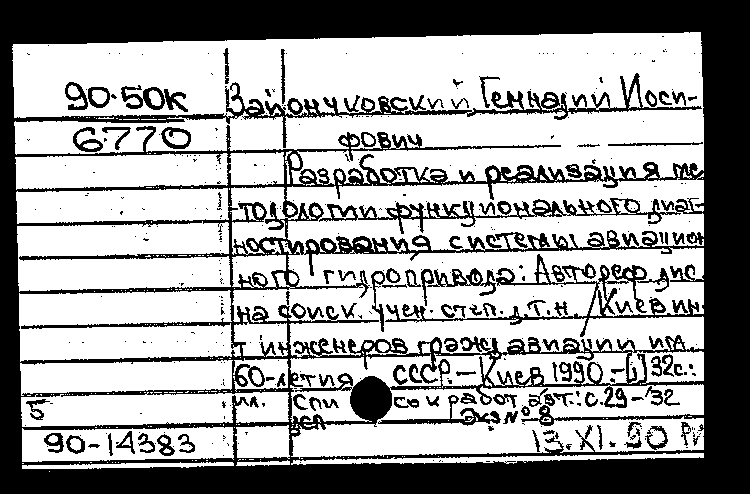 90-50к Зайончковский, Геннадий Иоси-
6770 фович
Разработка и реализация ме
-тодологии функционального диаг-
ностирования системы авиацион
ного гидропривода: Автореф. дис.
на соиск. учен. степ. д.т.н. / Киев ин-
т инженеров гражд. авиации им.
60-летия СССР. - Киев 1990. - [1] 32с.:
ил. Список работ авт.: с.29-32
5 Экз № 8
90-14383 13.XI.90